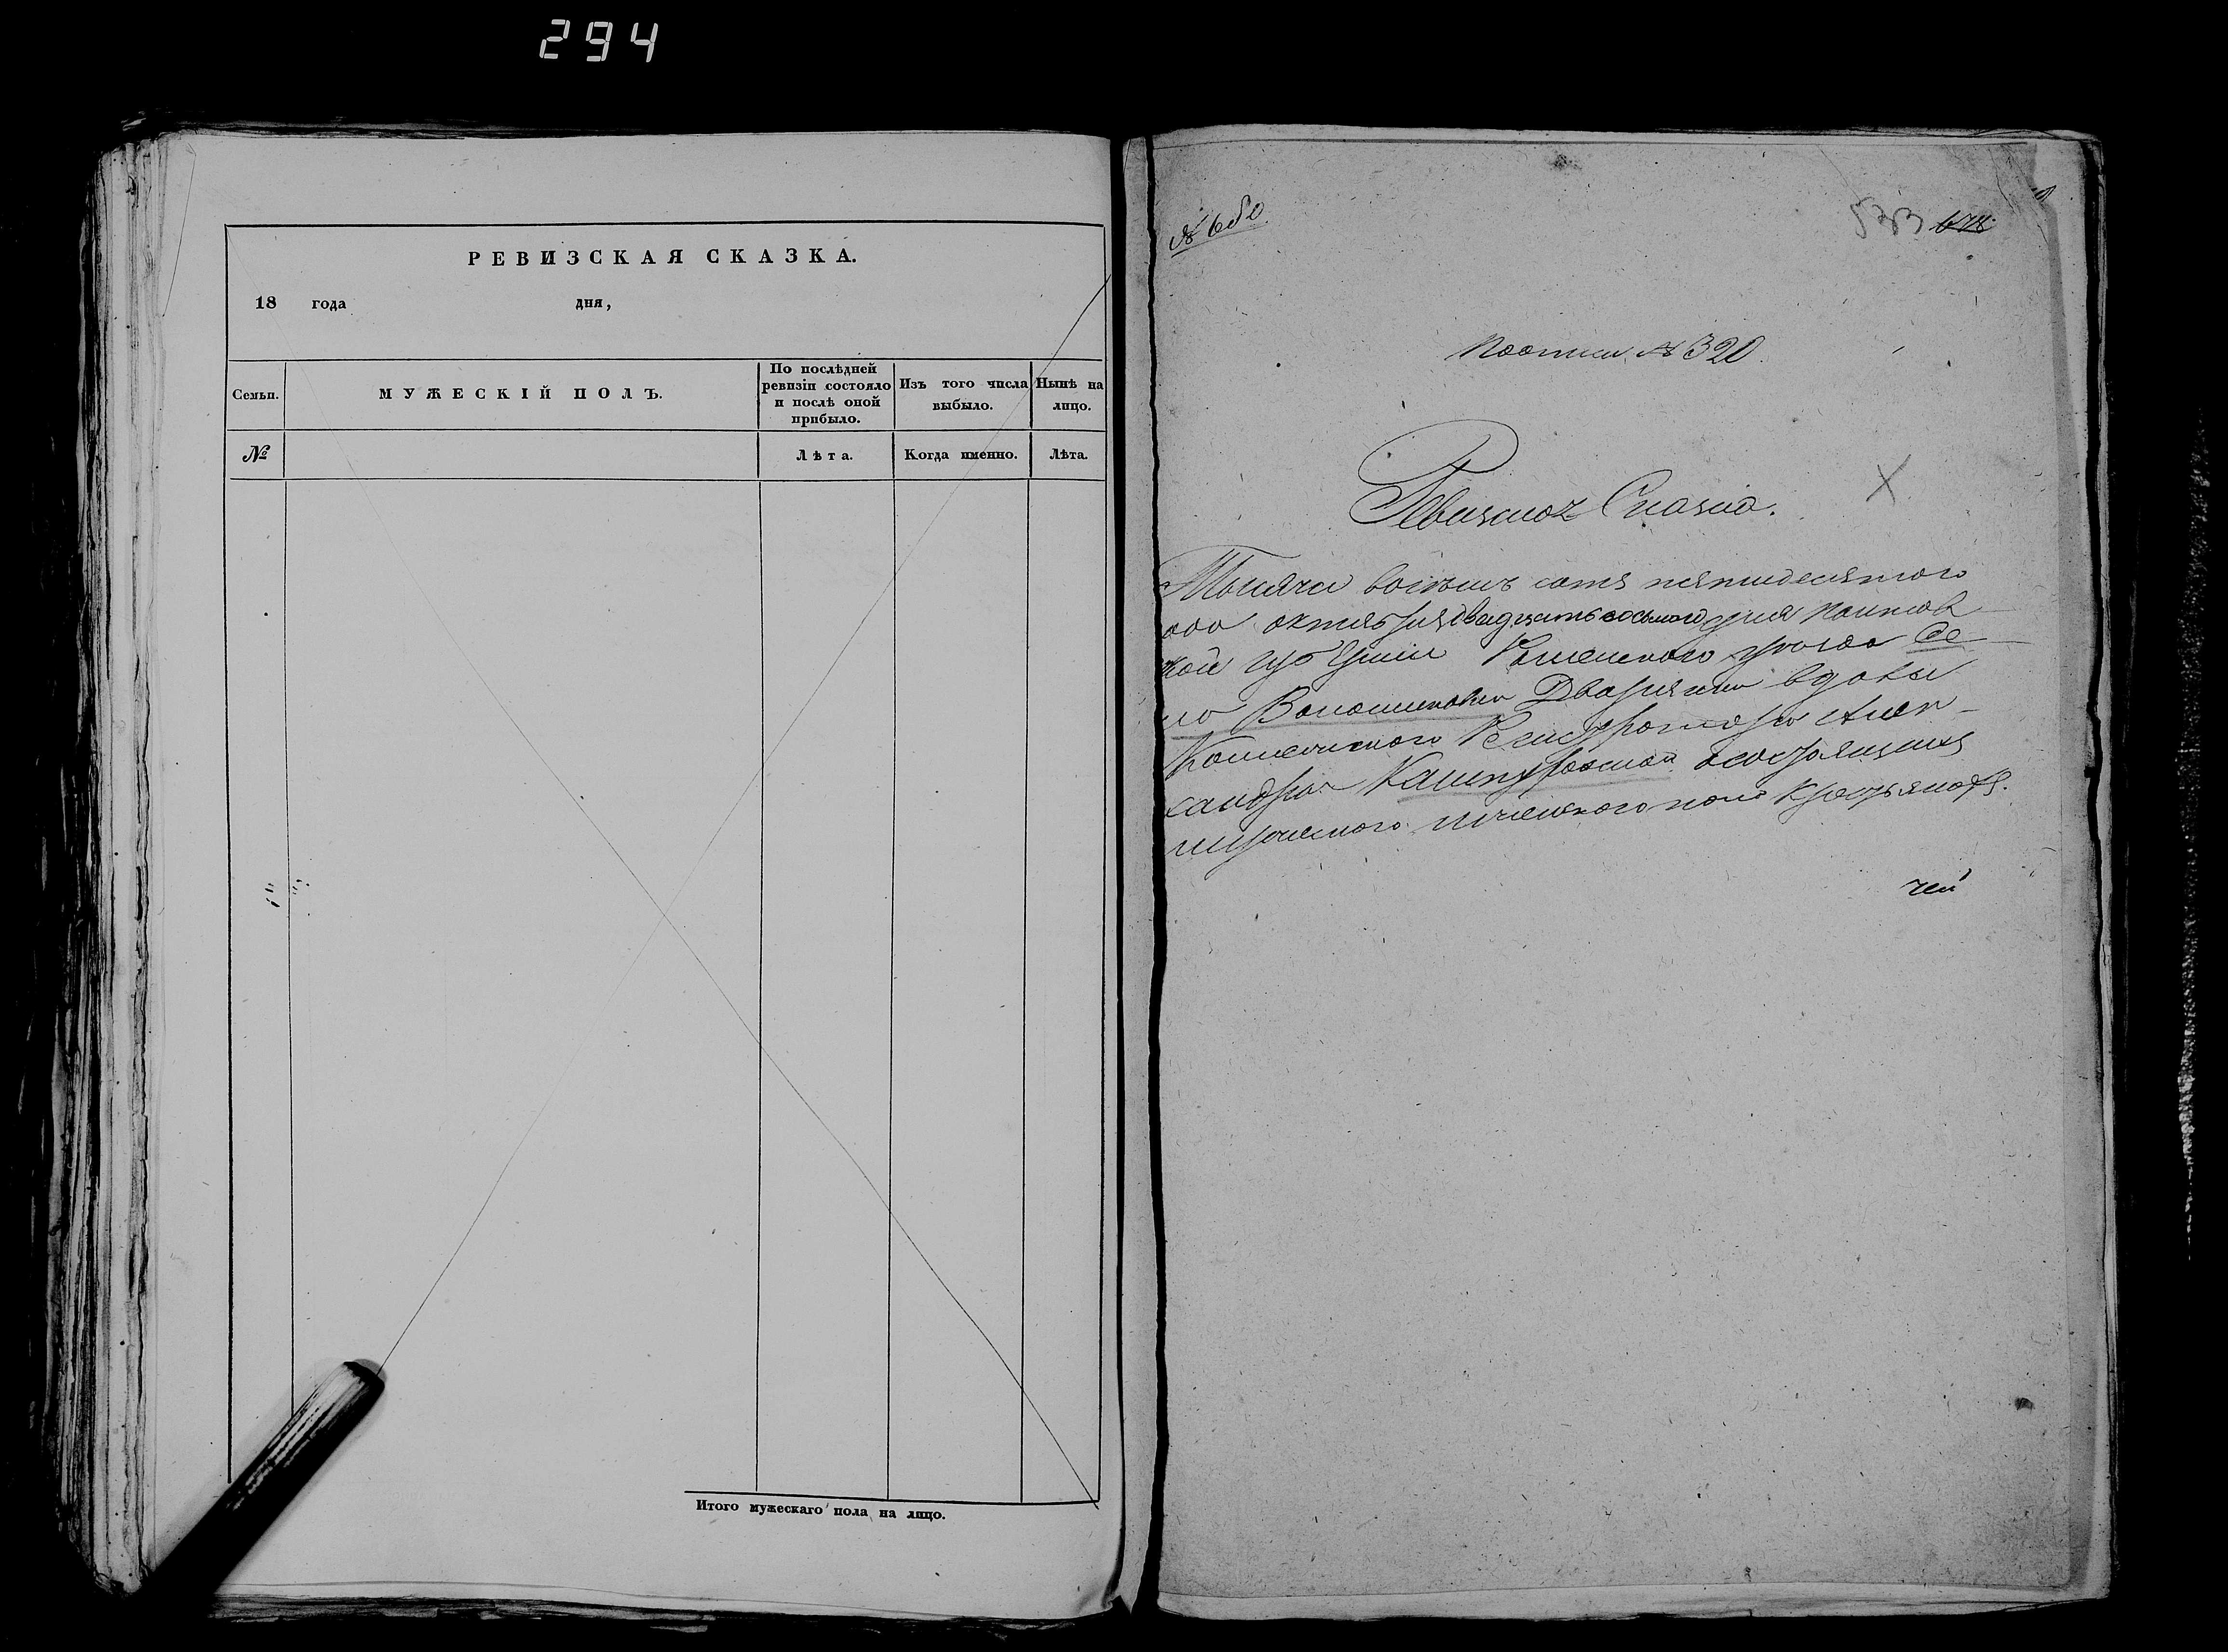 294
РЕВИЗСКАЯ СКАЗКА.
18 года дня,
Семьи.
МУЖЕСКІЙ ПОЛЪ.
По послѣдней ревизіи состояло и послѣ оной прибыло.
Изъ того числа выбыло.
Нынѣ на лицо.
№
Лѣта.
Когда именно.
Лѣта.
Итого мужескаго пола на лицо.
№ 680
533 678
№ 320
Ревизская Сказка.
Тысяча восемь сотъ пятидесятого
октября двадцать восьмого дня
кой губернии уезда Се
ло Дворянки вдовы
Регистратора Алек
сандры
мужеского и женского пола крестьянахъ.
чей